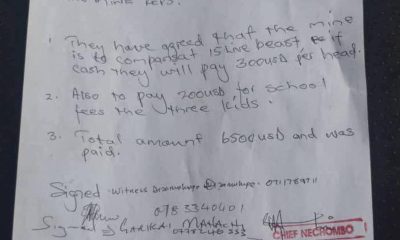 the mine
1. They have agreed that the mine
is to compensat 15 live beast & if
cash they will pay 300usd per head.
2. Also to pay 200usd for school
fees the three kids.
3. Total amount 6500usd and was
paid.
Signed - Witness 0717897
0783340401
Signed → GARIKAI
CHIEF NECHOMBO